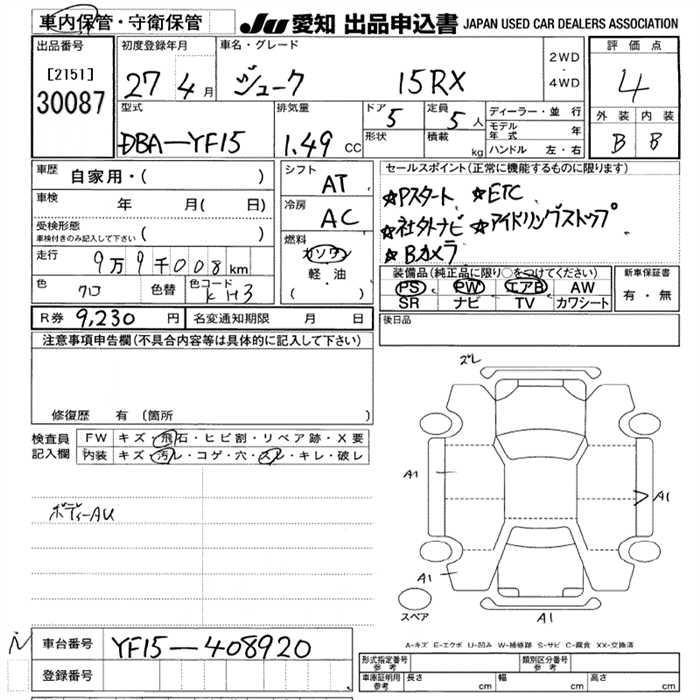 車内保管・守衛保管
JU 愛知 出品申込書 JAPAN USED CAR DEALERS ASSOCIATION
出品番号
[2151]
30087
初度登録年月
27 4月
車名・グレード
ジューク 15RX
2WD
・
4WD
評価点
4
外装 内装
B B
型式
DBA-YF15
排気量
1.49 CC
ドア 5
形状
定員 5人
積載 kg
ディーラー・並行
モデル年式 年
ハンドル 左・右
車歴
自家用・( )
車検 年 月( 日)
受検形態
車検付きのみ記入して下さい ( )
走行 9万9千008km
色 クロ 色替 色コード KH3
シフト AT
冷房 AC
燃料
ガソリン
軽・油
・( )
セールスポイント(正常に機能するものに限ります)
☆Pスタート ☆ETC
☆社外ナビ ☆アイドリングストップ
☆Bカメラ
装備品(純正品に限り○をつけてください)
PS PW エアB AW
SR ナビ TV カワシート
新車保証書
有・無
R券 9,230 円 名変通知期限 月 日
後日品
注意事項申告欄(不具合内容等は具体的に記入して下さい)
修復歴 有(箇所 )
検査員記入欄
FW キズ・飛石・ヒビ割・リペア跡・X要
内装 キズ・汚レ・コゲ・穴・スレ・キレ・破レ
ボディーAU
ズレ
A1
A1
A1
A1
スペア
A-キズ E-エクボ U-凹み W-補修跡 S-サビ C-腐食 XX-交換済
車台番号 YF15-408920
登録番号
形式指定番号 参考
類別区分番号 参考
車庫証明用 参考 長さ cm 幅 cm 高さ cm